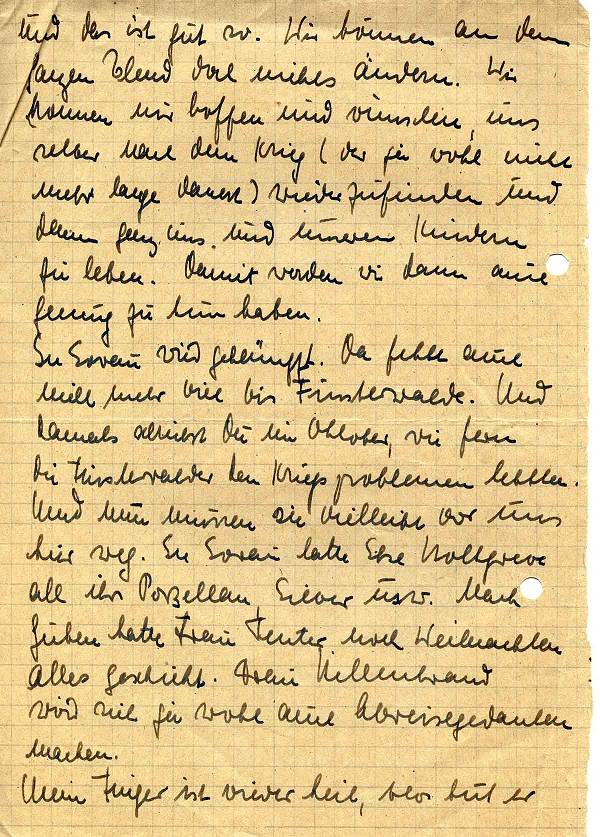 und das ist gut so. Wir können an dem
ganzen Elend doch nichts ändern. Wir
können nur hoffen und wünschen, uns
selber nach dem Krieg (der ja wohl nicht
mehr lange dauert) wiederzufinden und
dann ganz uns und unseren Kindern
zu leben. Damit werden wir dann auch
genug zu tun haben.
In Sorau wird gekämpft. Da fehlt auch
nicht mehr viel bis Finsterwalde. Und
damals schriebst Du im Oktober, wie fern
die Finsterwalder den Kriegsproblemen lebten.
Und nun müssen sie vielleicht vor uns
hier weg. In Sorau hatte Holtgreve
all ihr Porzellan, Silber usw. Nach
Guben hatte Frau noch Weihnachten
alles geschickt. Frau Hillenbrand
wird sich ja wohl auch Abreisegedanken
machen.
Mein Finger ist wieder heil, blos tut er